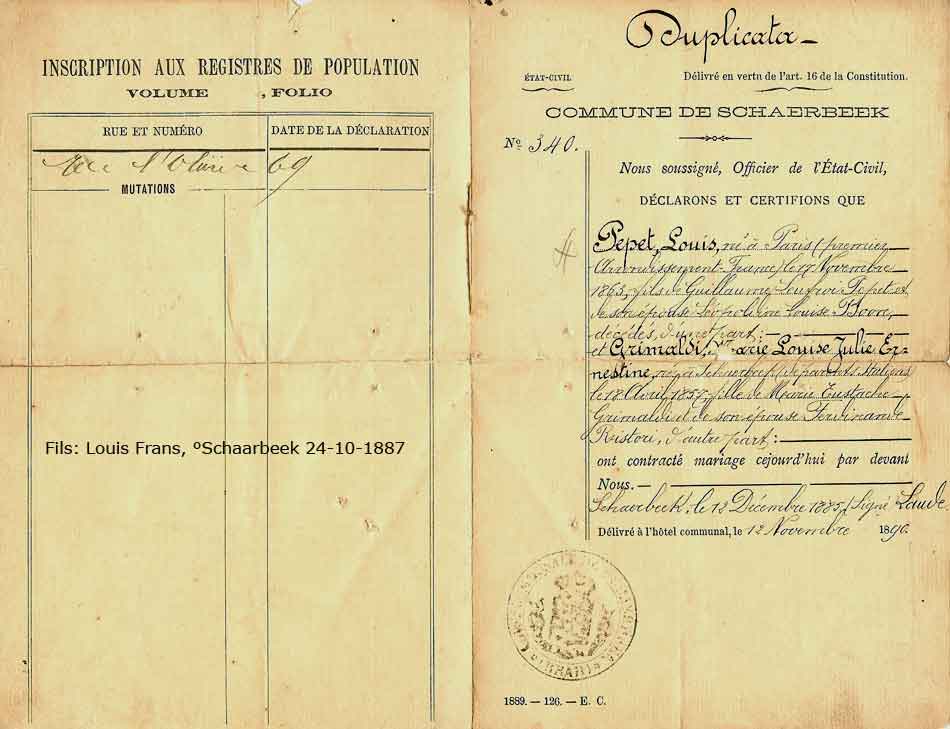 INSCRIPTION AUX REGISTRES DE POPULATION
VOLUME , FOLIO
RUE ET NUMÉRO
DATE DE LA DÉCLARATION
69
MUTATIONS
Fils: Louis Frans, °Schaarbeek 24-10-1887
Duplicata
ÉTAT-CIVIL
Délivré en vertu de l'art. 16 de la Constitution.
COMMUNE DE SCHAERBEEK
No 340.
Nous soussigné, Officier de l'État-Civil,
DÉCLARONS ET CERTIFIONS QUE
Pepet, Louis, né à Paris (premier
Arrondissement-France) le 17 Novembre
1863, fils de Guillaume Pepet et
de son épouse Léopoldine Louise Boon,
décédés, d'une part:
et Grimaldi, Marie Louise Julie Er-
nestine, née à Schaerbeek, de parents Italiens
le 18 Avril 1857, fille de Marie Eustache
Grimaldi et de son épouse Ferdinande
Ristori, d'autre part:
ont contracté mariage cejourd'hui par devant
Nous.
Schaerbeek, le 12 Décembre 1885 (Signé) Laude.
Délivré à l'hôtel communal, le 12 Novembre 1890.
1889. — 126. — E. C.